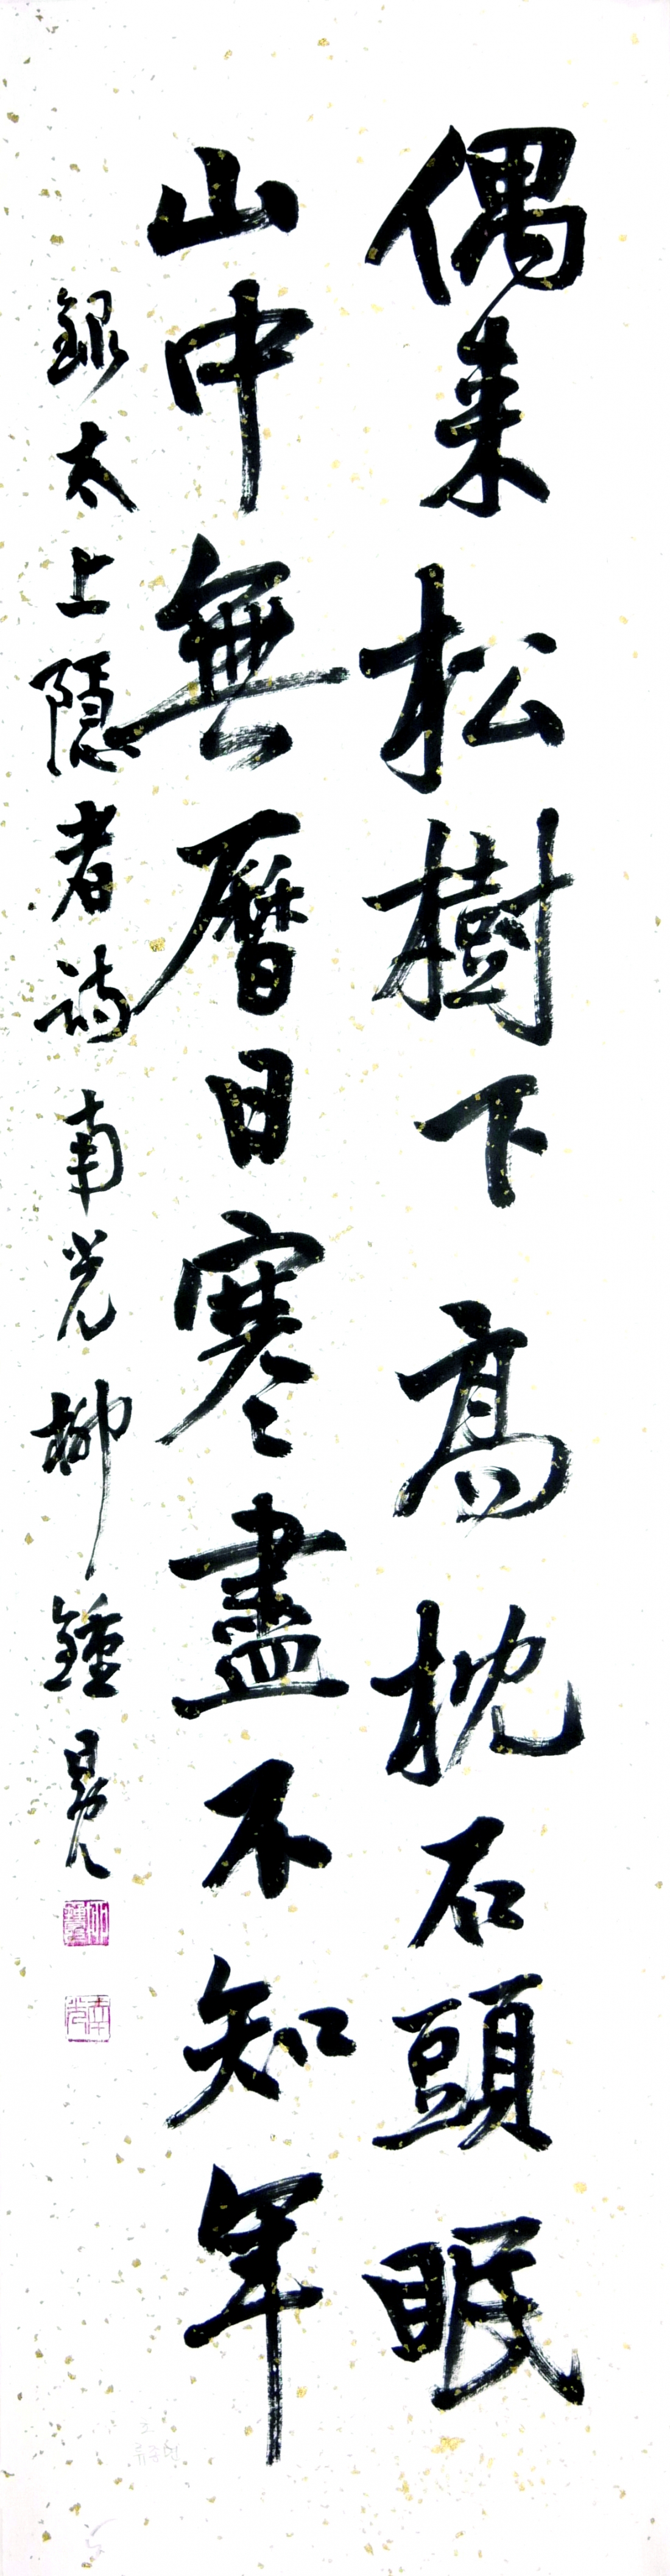 偶來松樹下高枕石頭眠
山中無曆日寒盡不知年
錄太上隱者詩南光柳鍾晃